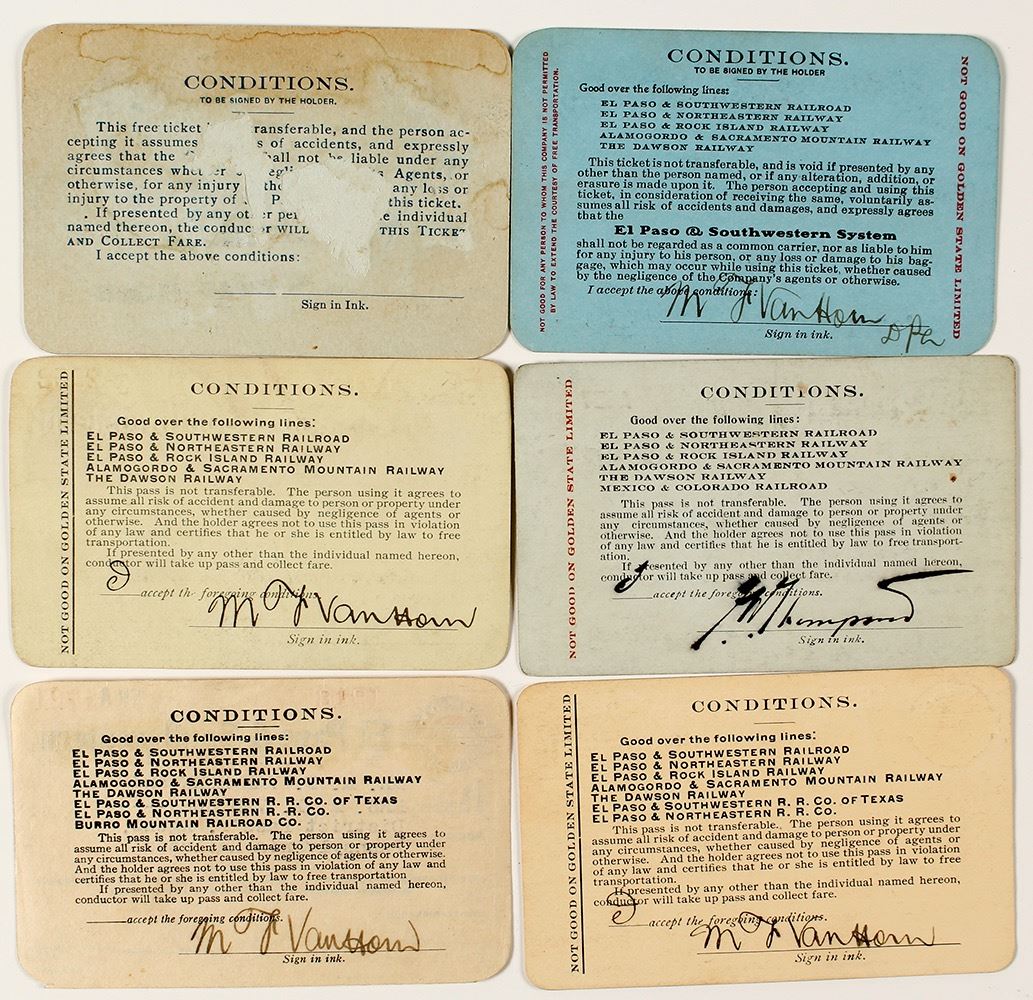 CONDITIONS.
TO BE SIGNED BY THE HOLDER.
This free ticket ransferable, and the person ac-
cepting it assumes s of accidents, and expressly
agrees that the hall not be liable under any
circumstances whether Agents, or
otherwise, for any injury any loss or
injury to the property of this ticket.
If presented by any other individual
named thereon, the conductor WILL THIS TICKET
AND COLLECT FARE.
I accept the above conditions:
Sign in Ink.
CONDITIONS.
TO BE SIGNED BY THE HOLDER
Good over the following lines:
EL PASO & SOUTHWESTERN RAILROAD
EL PASO & NORTHEASTERN RAILWAY
EL PASO & ROCK ISLAND RAILWAY
ALAMOGORDO & SACRAMENTO MOUNTAIN RAILWAY
THE DAWSON RAILWAY
This ticket is not transferable, and is void if presented by any
other than the person named, or if any alteration, addition, or
erasure is made upon it. The person accepting and using this
ticket, in consideration of receiving the same, voluntarily as-
sumes all risk of accidents and damages, and expressly agrees
that the
El Paso & Southwestern System
shall not be regarded as a common carrier, nor as liable to him
for any injury to his person, or any loss or damage to his bag-
gage, which may occur while using this ticket, whether caused
by the negligence of the Company's agents or otherwise.
I accept the above conditions:
M F Van Horn
Sign in ink.
NOT GOOD FOR ANY PERSON TO WHOM THIS COMPANY IS NOT PERMITTED
BY LAW TO EXTEND THE COURTESY OF FREE TRANSPORTATION.
NOT GOOD ON GOLDEN STATE LIMITED
NOT GOOD ON GOLDEN STATE LIMITED
CONDITIONS.
Good over the following lines:
EL PASO & SOUTHWESTERN RAILROAD
EL PASO & NORTHEASTERN RAILWAY
EL PASO & ROCK ISLAND RAILWAY
ALAMOGORDO & SACRAMENTO MOUNTAIN RAILWAY
THE DAWSON RAILWAY
This pass is not transferable. The person using it agrees to
assume all risk of accident and damage to person or property under
any circumstances, whether caused by negligence of agents or
otherwise. And the holder agrees not to use this pass in violation
of any law and certifies that he or she is entitled by law to free
transportation.
If presented by any other than the individual named hereon,
conductor will take up pass and collect fare.
I accept the foregoing conditions.
M F Van Horn
Sign in ink.
NOT GOOD ON GOLDEN STATE LIMITED
CONDITIONS.
Good over the following lines:
EL PASO & SOUTHWESTERN RAILROAD
EL PASO & NORTHEASTERN RAILWAY
EL PASO & ROCK ISLAND RAILWAY
ALAMOGORDO & SACRAMENTO MOUNTAIN RAILWAY
THE DAWSON RAILWAY
MEXICO & COLORADO RAILROAD
This pass is not transferable. The person using it agrees to
assume all risk of accident and damage to person or property under
any circumstances, whether caused by negligence of agents or
otherwise. And the holder agrees not to use this pass in violation
of any law and certifies that he is entitled by law to free transport-
ation.
If presented by any other than the individual named hereon,
conductor will take up pass and collect fare.
I accept the foregoing conditions.
Thompson
Sign in ink.
CONDITIONS.
Good over the following lines:
EL PASO & SOUTHWESTERN RAILROAD
EL PASO & NORTHEASTERN RAILWAY
EL PASO & ROCK ISLAND RAILWAY
ALAMOGORDO & SACRAMENTO MOUNTAIN RAILWAY
THE DAWSON RAILWAY
EL PASO & SOUTHWESTERN R. R. CO. OF TEXAS
EL PASO & NORTHEASTERN R. R. CO.
BURRO MOUNTAIN RAILROAD CO.
This pass is not transferable. The person using it agrees to
assume all risk of accident and damage to person or property under
any circumstances, whether caused by negligence of agents or otherwise.
And the holder agrees not to use this pass in violation of any law and
certifies that he or she is entitled by law to free transportation
If presented by any other than the individual named hereon,
conductor will take up pass and collect fare.
accept the foregoing conditions.
M F Van Horn
Sign in ink.
NOT GOOD ON GOLDEN STATE LIMITED
CONDITIONS.
Good over the following lines:
EL PASO & SOUTHWESTERN RAILROAD
EL PASO & NORTHEASTERN RAILWAY
EL PASO & ROCK ISLAND RAILWAY
ALAMOGORDO & SACRAMENTO MOUNTAIN RAILWAY
THE DAWSON RAILWAY
EL PASO & SOUTHWESTERN R. R. CO. OF TEXAS
EL PASO & NORTHEASTERN R. R. CO.
This pass is not transferable. The person using it agrees to
assume all risk of accident and damage to person or property under
any circumstances, whether caused by negligence of agents or
otherwise. And the holder agrees not to use this pass in violation
of any law and certifies that he or she is entitled by law to free
transportation.
If presented by any other than the individual named hereon,
conductor will take up pass and collect fare.
I accept the foregoing conditions.
M F Van Horn
Sign in ink.